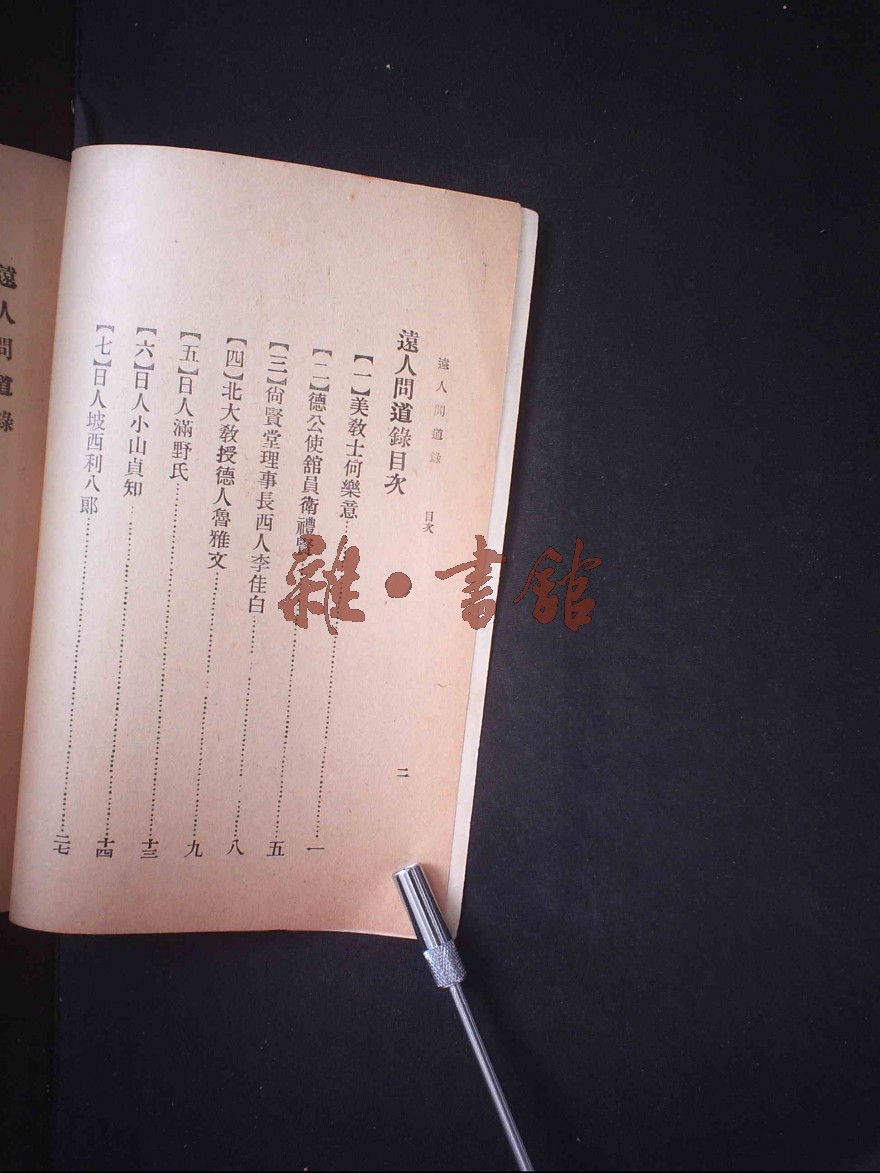 遠人問道錄 目次 二
遠人問道錄目次
【一】美教士何樂意……一
【二】德公使舘員衛禮賢……五
【三】尙賢堂理事長西人李佳白……八
【四】北大教授德人魯雅文……九
【五】日人滿野氏……十三
【六】日人小山貞知……十四
【七】日人坡西利八郎……二七
遠人問道錄
雜·書館